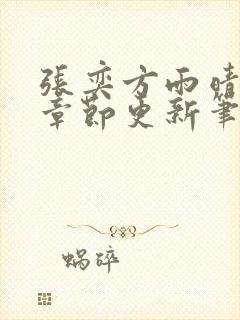 張奕方雨晴
章節更新筆
蝸碎